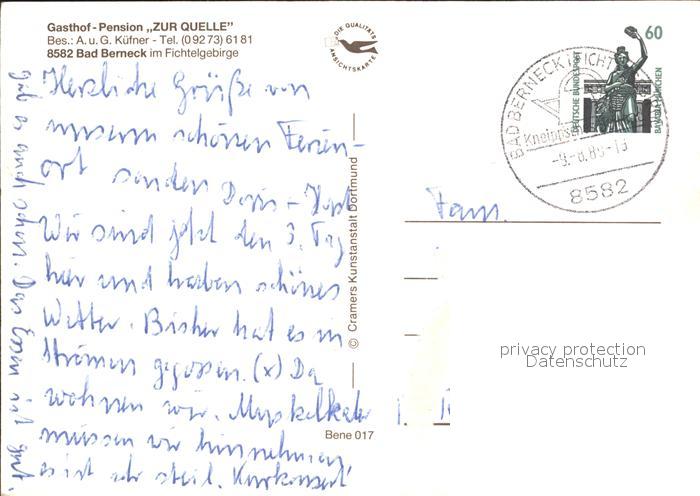 Gasthof-Pension „ZUR QUELLE”
Bes.: A. u. G. Küfner - Tel. (0 92 73) 61 81
8582 Bad Berneck im Fichtelgebirge
DIE QUALITÄTS
ANSICHTSKARTE
Herzliche Grüße von
unserem schönen Ferien-
ort senden Doris - Horst
Wir sind jetzt den 3. Tag
hier und haben schönes
Wetter. Bisher hat es in
Strömen gegossen. (x) Da
wohnen wir. Muskelkater
müssen wir hinnehmen
es ist sehr steil. Kurkonzert
gab es auch schon. Das Essen ist gut.
© Cramers Kunstanstalt Dortmund
Bene 017
60
DEUTSCHE BUNDESPOST
BAVARIA MÜNCHEN
BAD BERNECK I. FICHT
Kneipp
8582
Fam.
privacy protection
Datenschutz